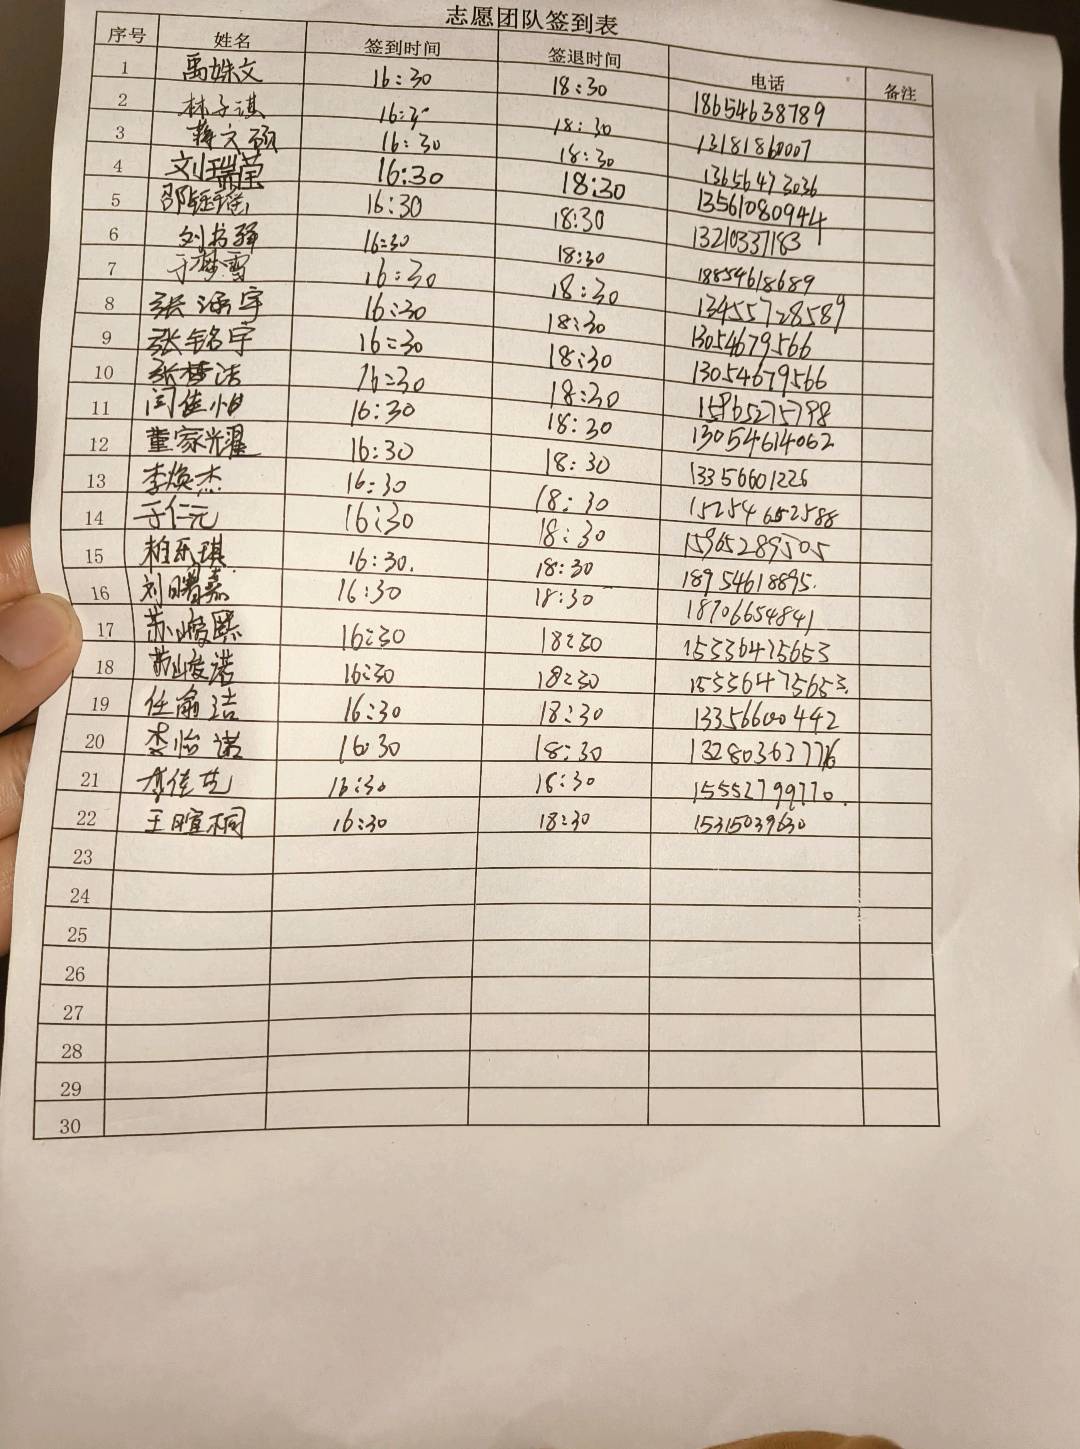 志愿团队签到表
序号 姓名 签到时间 签退时间 电话 备注
1 禹姝文 16:30 18:30 18654638789
2 林子淇 16:30 18:30 13181860007
3 蒋文硕 16:30 18:30 13656473036
4 刘瑞莹 16:30 18:30 13561080944
5 邵钰瑶 16:30 18:30 13210337183
6 刘书驿 16:30 18:30 18854618689
7 于梦雪 16:30 18:30 13455728589
8 张涵宇 16:30 18:30 13054679566
9 张铭宇 16:30 18:30 13054679566
10 张梦洁 16:30 18:30 15965275798
11 闫佳怡 16:30 18:30 13054614062
12 董家光耀 16:30 18:30 13356601226
13 李焕杰 16:30 18:30 15254652588
14 于仁元 16:30 18:30 15965289505
15 柏乐琪 16:30. 18:30 18954618895.
16 刘曙嘉 16:30 18:30 18706654841
17 苏峻熙 16:30 18:30 15336475653
18 苏峻诺 16:30 18:30 15336475653.
19 任俞洁 16:30 18:30 13356600442
20 李怡诺 16:30 18:30
21 李佳艺 16:30 18:30 15552799770.
22 王暄桐 16:30 18:30 15315039630
23
24
25
26
27
28
29
30